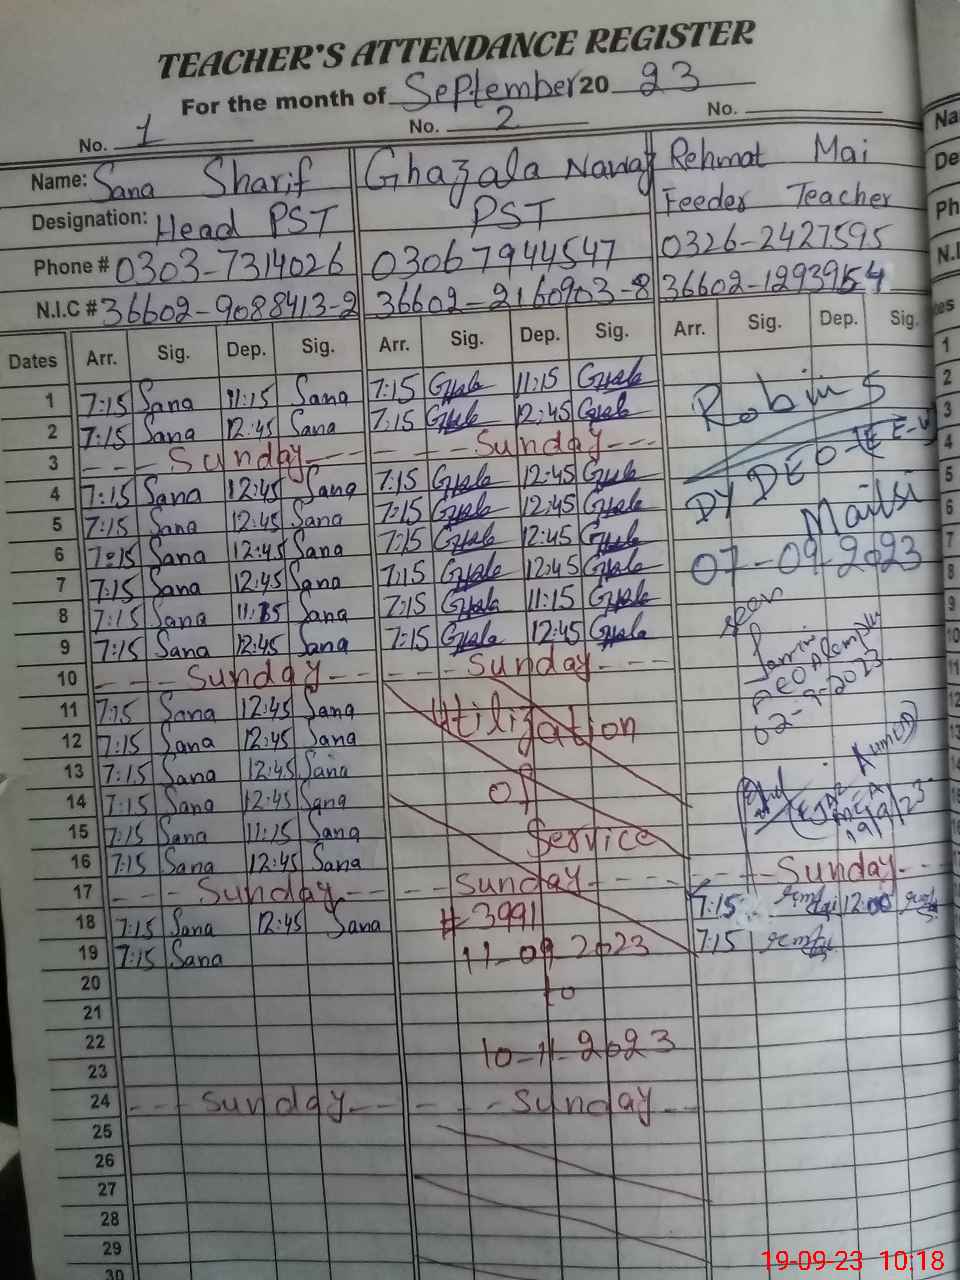 TEACHER'S ATTENDANCE REGISTER
For the month of September 20 23
No. 1 No. 2 No.
Name: Sana Sharif Ghazala Nawaz Rehmat Mai
Designation: Head PST PST Feeder Teacher
Phone # 0303-7314026 03067944547 0326-2427595
N.I.C # 36602-9088413-2 36602-2160903-8 36602-1293915-4
Dates Arr. Sig. Dep. Sig. Arr. Sig. Dep. Sig. Arr. Sig. Dep. Sig.
1 7:15 Sana 11:15 Sana 7:15 11:15
2 7:15 Sana 12:45 Sana 7:15 12:45
3 Sunday Sunday
4 7:15 Sana 12:45 Sana 7:15 12:45
5 7:15 Sana 12:45 Sana 7:15 12:45
6 7:15 Sana 12:45 Sana 7:15 12:45
7 7:15 Sana 12:45 Sana 7:15 12:45
8 7:15 Sana 11:15 Sana 7:15 11:15
9 7:15 Sana 12:45 Sana 7:15 12:45
10 Sunday Sunday
11 7:15 Sana 12:45 Sana
12 7:15 Sana 12:45 Sana
13 7:15 Sana 12:45 Sana
14 7:15 Sana 12:45 Sana
15 7:15 Sana 11:15 Sana
16 7:15 Sana 12:45 Sana
17 Sunday Sunday Sunday
18 7:15 Sana 12:45 Sana 7:15 12:00
19 7:15 Sana 7:15
20
21
22
23
24 Sunday Sunday
25
26
27
28
29
30
Utilization
of
Service
# 3991
11-09-2023
to
10-11-2023
DY DEO
Mailsi
07-09-2023
seen
02-9-2023
19/9/23
Na
De
Ph
N.I
1
2
3
4
5
6
7
8
9
10
11
12
13
19-09-23 10:18